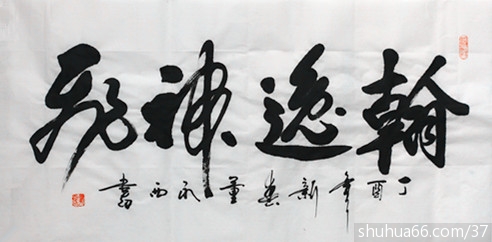 翰逸神飛
丁酉年新春董西書
shuhua66.com/37